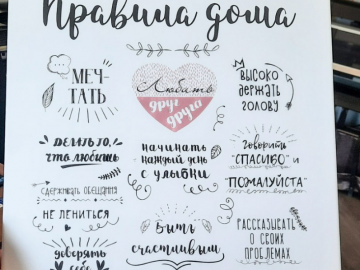 Правила дома
МЕЧ-
ТАТЬ
Любить
друг
друга
ВЫСОКО
ДЕРЖАТЬ
ГОЛОВУ
ДЕЛАТЬ ТО,
что любишь
начинать
каждый день
с улыбки
говорить
"СПАСИБО" и
"ПОЖАЛУЙСТА"
СДЕРЖИВАТЬ ОБЕЩАНИЯ
НЕ ЛЕНИТЬСЯ
Быть
счастливым
РАССКАЗЫВАТЬ
О СВОИХ
ПРОБЛЕМАХ
доверять
себе